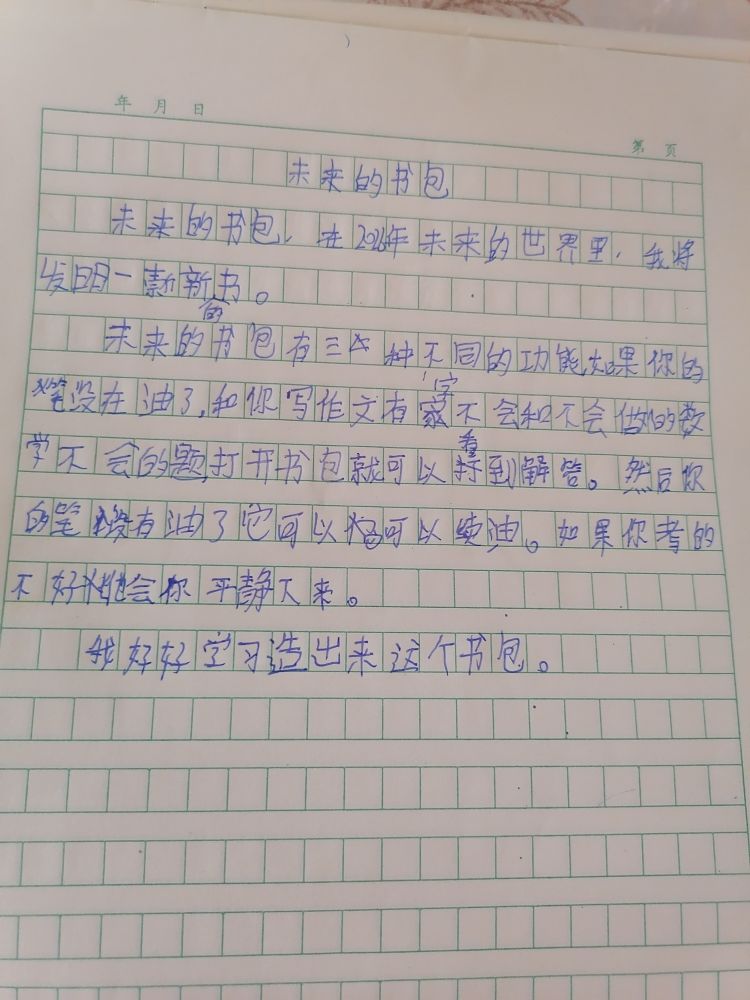 年 月 日
第 页
未来的书包
未来的书包,在2026年未来的世界里,我将
发明一款新书。
的
未来的书包有三种不同的功能,如果你的
笔没在油了,和你写作文有字不会和不会做的数
学不会的题,打开书包就可以看到解答。然后你
的笔没有油了它可以可以续油。如果你考的
不好他会你平静下来。
我好好学习造出来这个书包。